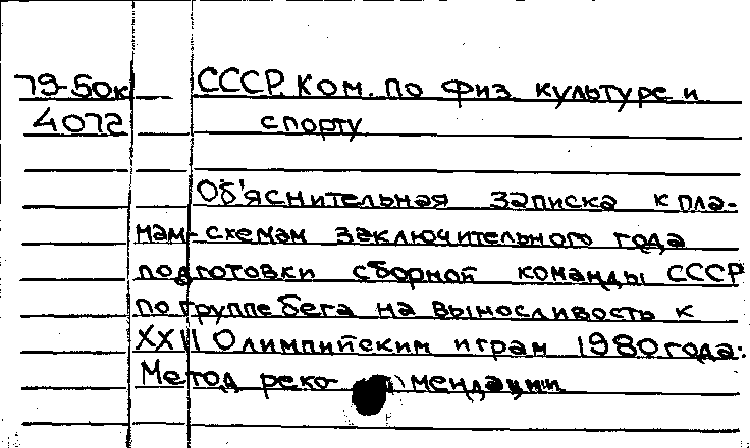 79-50к СССР. Ком. по физ культуре и
4072 спорту.
Об'яснительная записка к пла-
нам-схемам заключительного года
подготовки сборной команды СССР
по группе бега на выносливость к
XXII Олимпийским играм 1980 года:
Метод реко- мендации